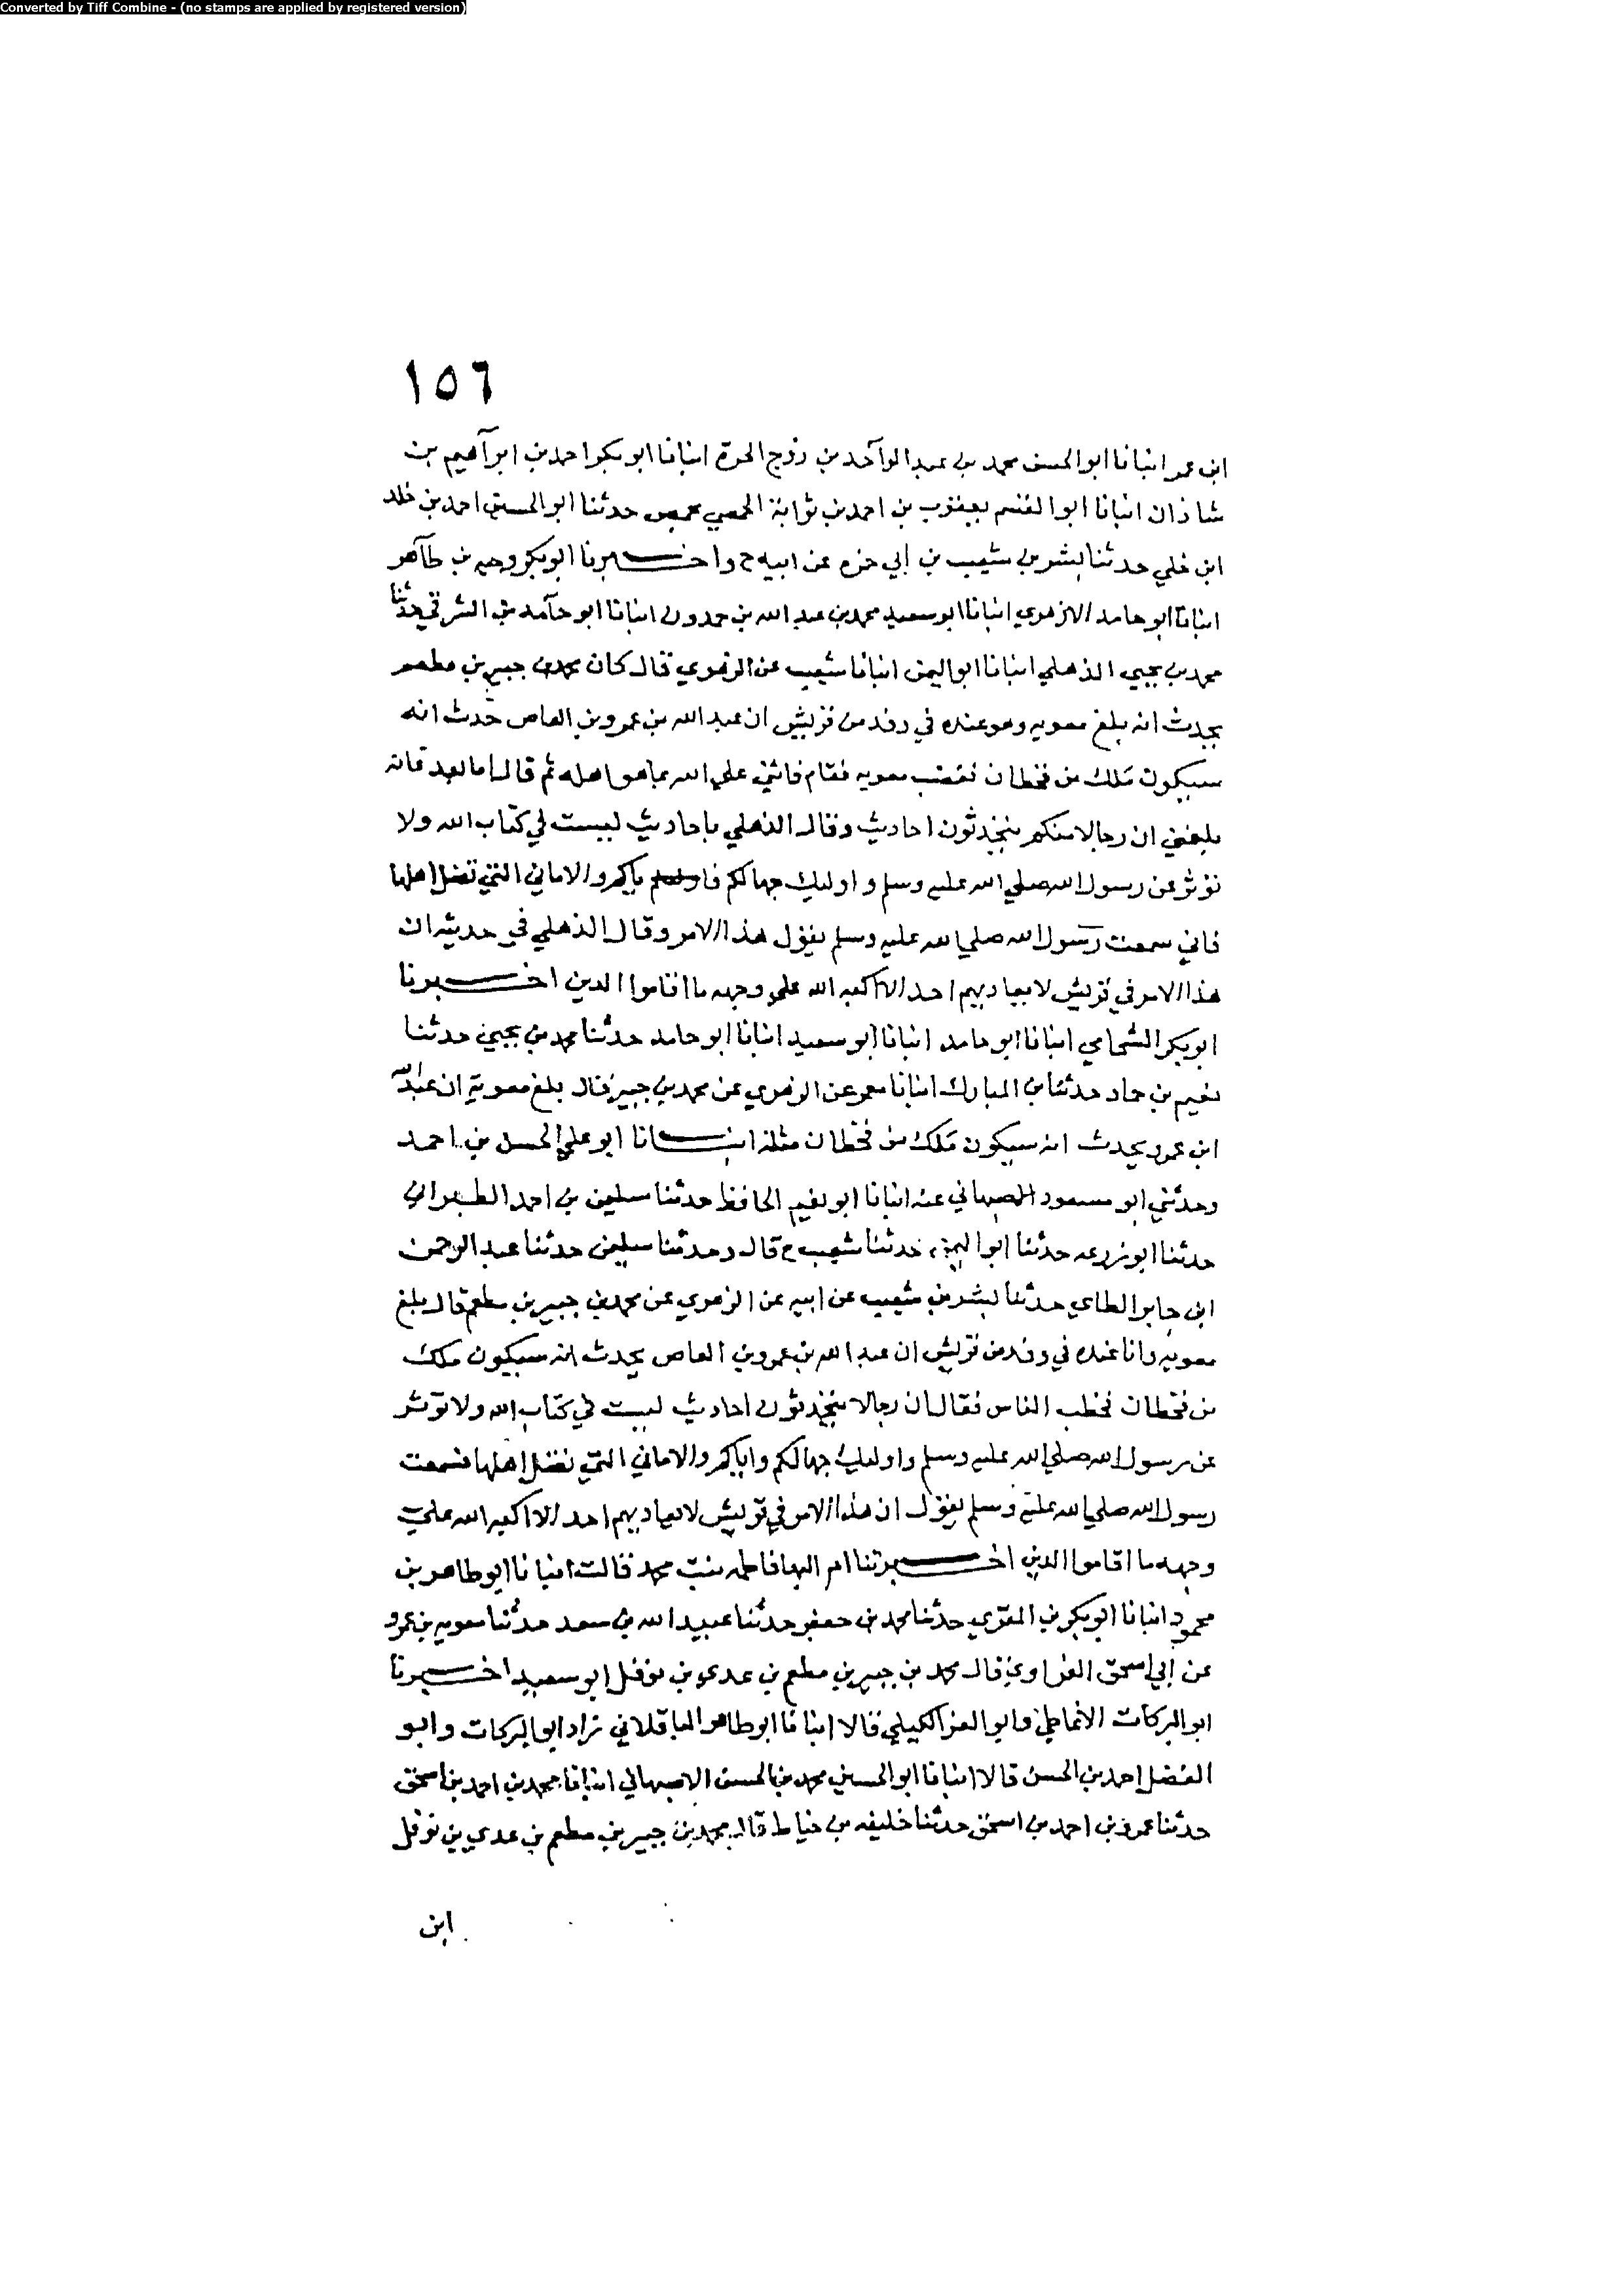 Converted by Tiff Combine - (no stamps are applied by registered version)
١٥٦
ابن عمر انبانا ابو الحسن محمد بن عبد الواحد بن زوج الحرة انبانا ابو بكر احمد بن ابرآهيم بن
شاذان انبانا ابو القسم يعقوب بن احمد بن ثوابة الحمصي بحمص حدثنا ابو الحسين احمد بن خلد
ابن خلي حدثنا بشر بن شعيب بن ابي حمزه عن ابيه ح واخبرنا ابو بكر وجيه بن طآهر
انبانا ابو حامد الازهري انبانا ابو سعيد محمد بن عبد الله بن حمدون انبانا ابو حآمد بن الشرقي حدثنا
محمد بن يحيي الذهلي انبانا ابو اليمن انبانا شعيب عن الزهري قال كان محمد بن جبير بن مطعم
يحدث انه بلغ معويه وهو عنده في وفد من قريش ان عبد الله بن عمرو بن العاص حدث انه
سيكون ملك من قحطان فغضب معويه فقام فاثني علي الله بما هو اهله ثم قال اما بعد فانه
بلغني ان رجالا منكم يتحدثون احاديث وقال الذهلي باحاديث ليست في كتاب الله ولا
تؤثر عن رسول الله صلي الله عليه وسلم و اوليك جهالكم فاياكم والاماني التي تضل اهلها
فاني سمعت رسول الله صلي الله عليه وسلم يقول هذا الامر وقال الذهلي في حديثه ان
هذا الامر في قريش لا يعاديهم احد الا اكبه الله علي وجهه ما اقاموا الدين اخبرنا
ابو بكر الشحامي انبانا ابو حامد انبانا ابو سعيد انبانا ابو حامد حدثنا محمد بن يحيي حدثنا
نعيم بن حماد حدثنا بن المبارك انبانا معمر عن الزهري عن محمد بن جبير قال بلغ معوية ان عبد الله
ابن عمرو يحدث انه سيكون ملك من قحطان مثله انبانا ابو علي الحسن بن احمد
وحدثني ابو مسعود الاصبهاني عنه انبانا ابو نعيم الحافظ حدثنا سليمن بن احمد الطبراني
حدثنا ابو زرعه حدثنا ابو اليمن حدثنا شعيب ح قال وحدثنا سليمن حدثنا عبد الرحمن
ابن جابر الطاي حدثنا بشر بن شعيب عن ابيه عن الزهري عن محمد بن جبير بن مطعم قال بلغ
معويه وانا عنده في وفد من قريش ان عبد الله بن عمرو بن العاص يحدث انه سيكون ملك
من قحطان فخطب الناس فقال ان رجالا يتحدثون احاديث ليست في كتاب الله ولا تؤثر
عن رسول الله صلي الله عليه وسلم واوليك جهالكم واياكم والاماني التي تضل اهلها فسمعت
رسول الله صلي الله عليه وسلم يقول ان هذا الامر في قريش لا يعاديهم احد الا اكبه الله علي
وجهه ما اقاموا الدين اخبرتنا ام البها فاطمه بنت محمد قالت انبانا ابو طاهر بن
محمود انبانا ابو بكر بن المقري حدثنا محمد بن جعفر حدثنا عبيد الله بن سعد حدثنا معويه بن عمرو
عن ابي اسحق الفزاوي قال محمد بن جبير بن مطعم بن عدي بن نوفل ابو سعيد اخبرنا
ابو البركات الانماطي وابو العز الكيلي قالا انبانا ابو طاهر الباقلاني زاد ابو البركات وابو
الفضل احمد بن الحسن قالا انبانا ابو الحسين محمد بن الحسن الاصبهاني انبانا محمد بن احمد بن اسحق
حدثنا عمر بن احمد بن اسحق حدثنا خليفه بن خياط قال محمد بن جبير بن مطعم بن عدي بن نوفل
ابن